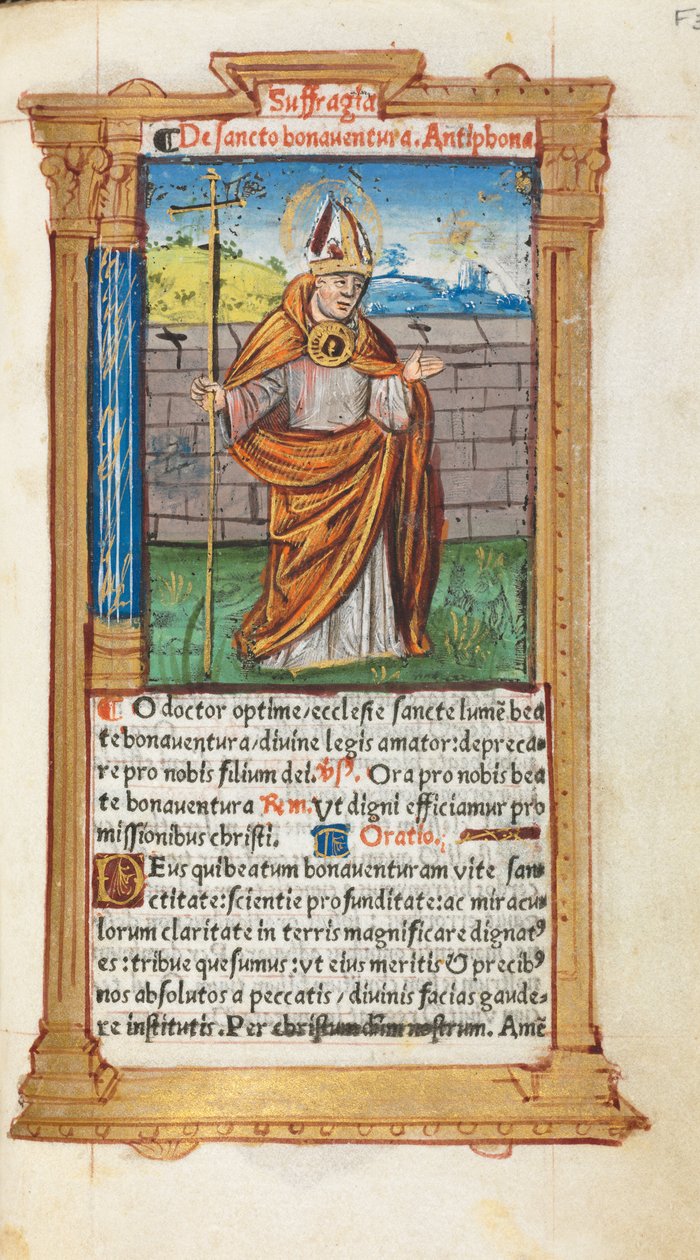 F3
Suffragia
⸿ De sancto bonaventura. Antiphona.
⸿ O doctor optime/ecclesie sancte lumē bea
te bonaventura/divine legis amator:depreca-
re pro nobis filium dei. ꝟ. Ora pro nobis bea
te bonaventura Rem. Vt digni efficiamur pro
missionibus christi. Oratio.
DEus qui beatum bonaventuram vite san-
ctitate:scientie profunditate:ac miracu-
lorum claritate in terris magnificare dignatꝰ
es:tribue quesumus:vt eius meritis & precibꝰ
nos absolutos a peccatis/divinis facias gaude-
re institutis. Per christum dn̄m nostrum. Amē